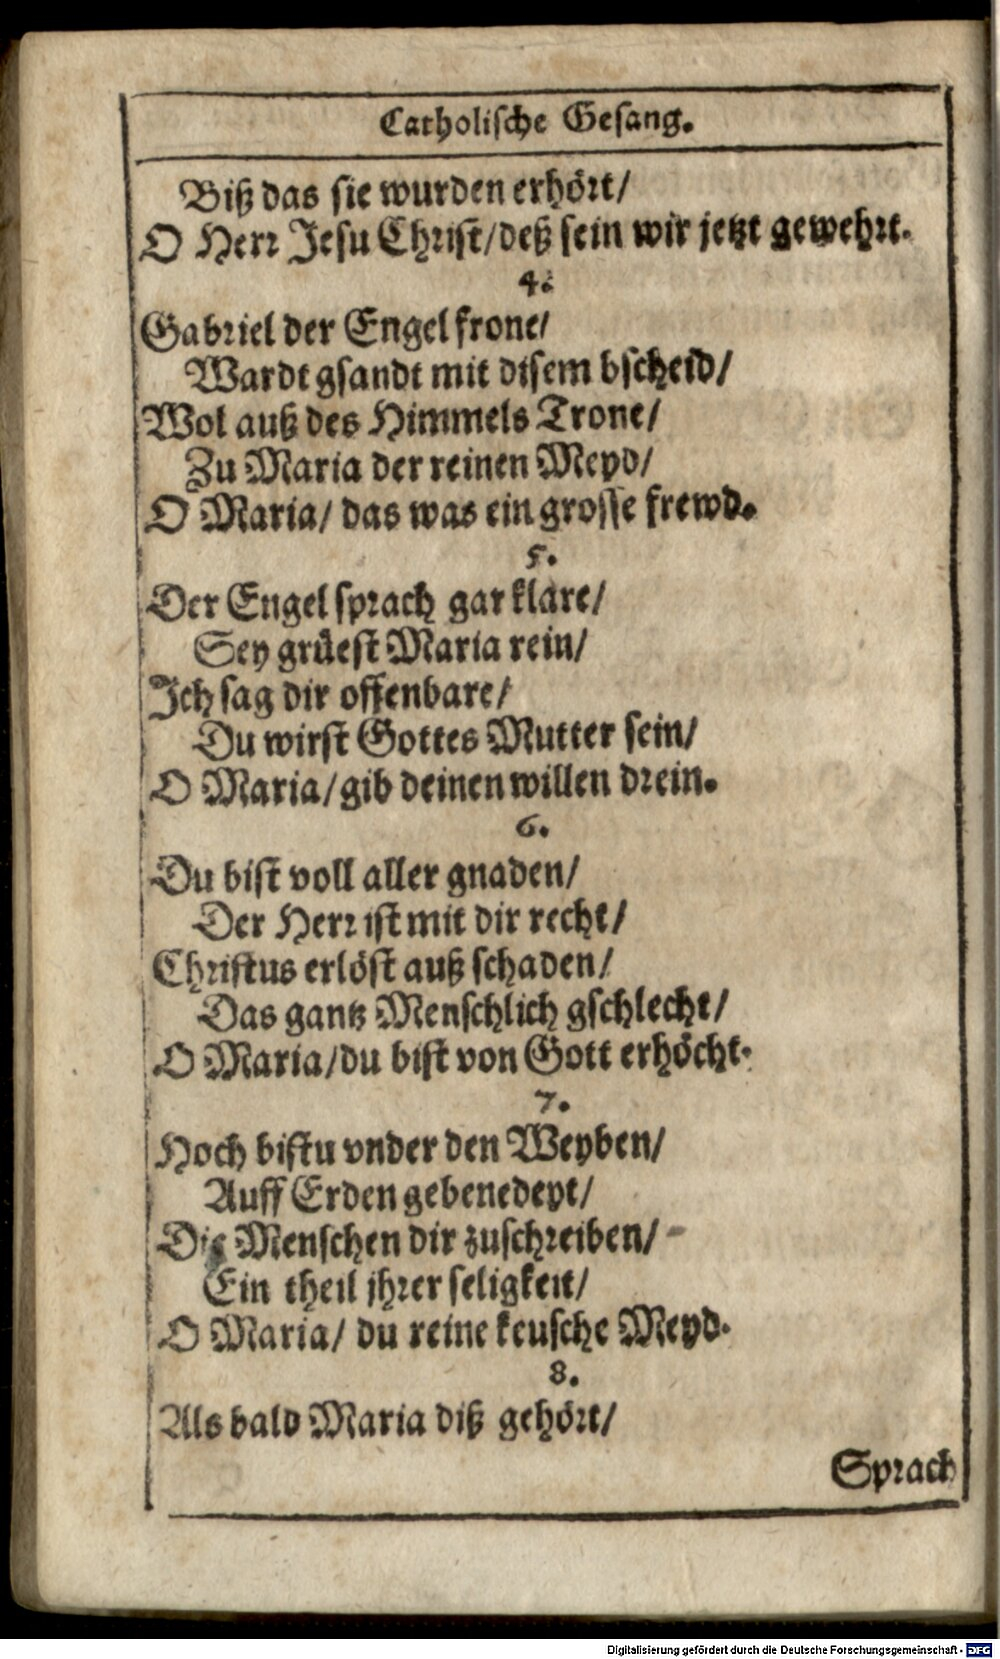 Catholische Gesang.
Biß das sie wurden erhört/
O Herr Jesu Christ/deß sein wir jetzt gewehrt.
4.
Gabriel der Engel frone/
Wardt gsandt mit disem bscheid/
Wol auß des Himmels Trone/
Zu Maria der reinen Meyd/
O Maria/ das was ein grosse frewd.
5.
Der Engel sprach gar klare/
Sey grüest Maria rein/
Ich sag dir offenbare/
Du wirst Gottes Mutter sein/
O Maria/gib deinen willen drein.
6.
Du bist voll aller gnaden/
Der Herr ist mit dir recht/
Christus erlöst auß schaden/
Das gantz Menschlich gschlecht/
O Maria/du bist von Gott erhöcht.
7.
Hoch bistu vnder den Weyben/
Auff Erden gebenedeyt/
Die Menschen dir zuschreiben/
Ein theil jhrer seligkeit/
O Maria/ du reine keusche Meyd.
8.
Als bald Maria diß gehört/
Sprach
Digitalisierung gefördert durch die Deutsche Forschungsgemeinschaft - DFG